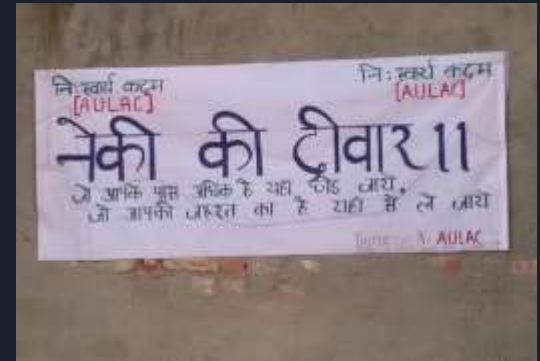 नि:स्वार्थ कदम नि:स्वार्थ कदम
[AULAC] [AULAC]
नेकी की दीवार।।
जो आपके पास अधिक है यहाँ छोड़ जाये,
जो आपकी जरूरत का है यहाँ से ले जाये
AULAC